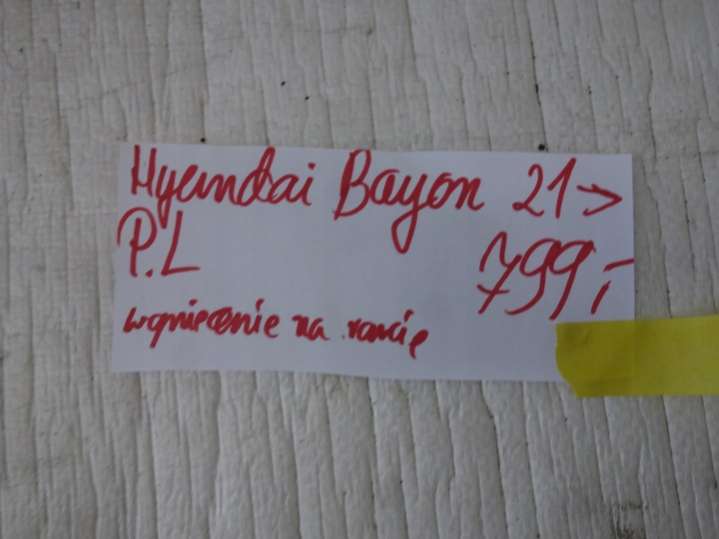 Hyundai Bayon 21->
P.L 799,-
wgniecenie na rancie